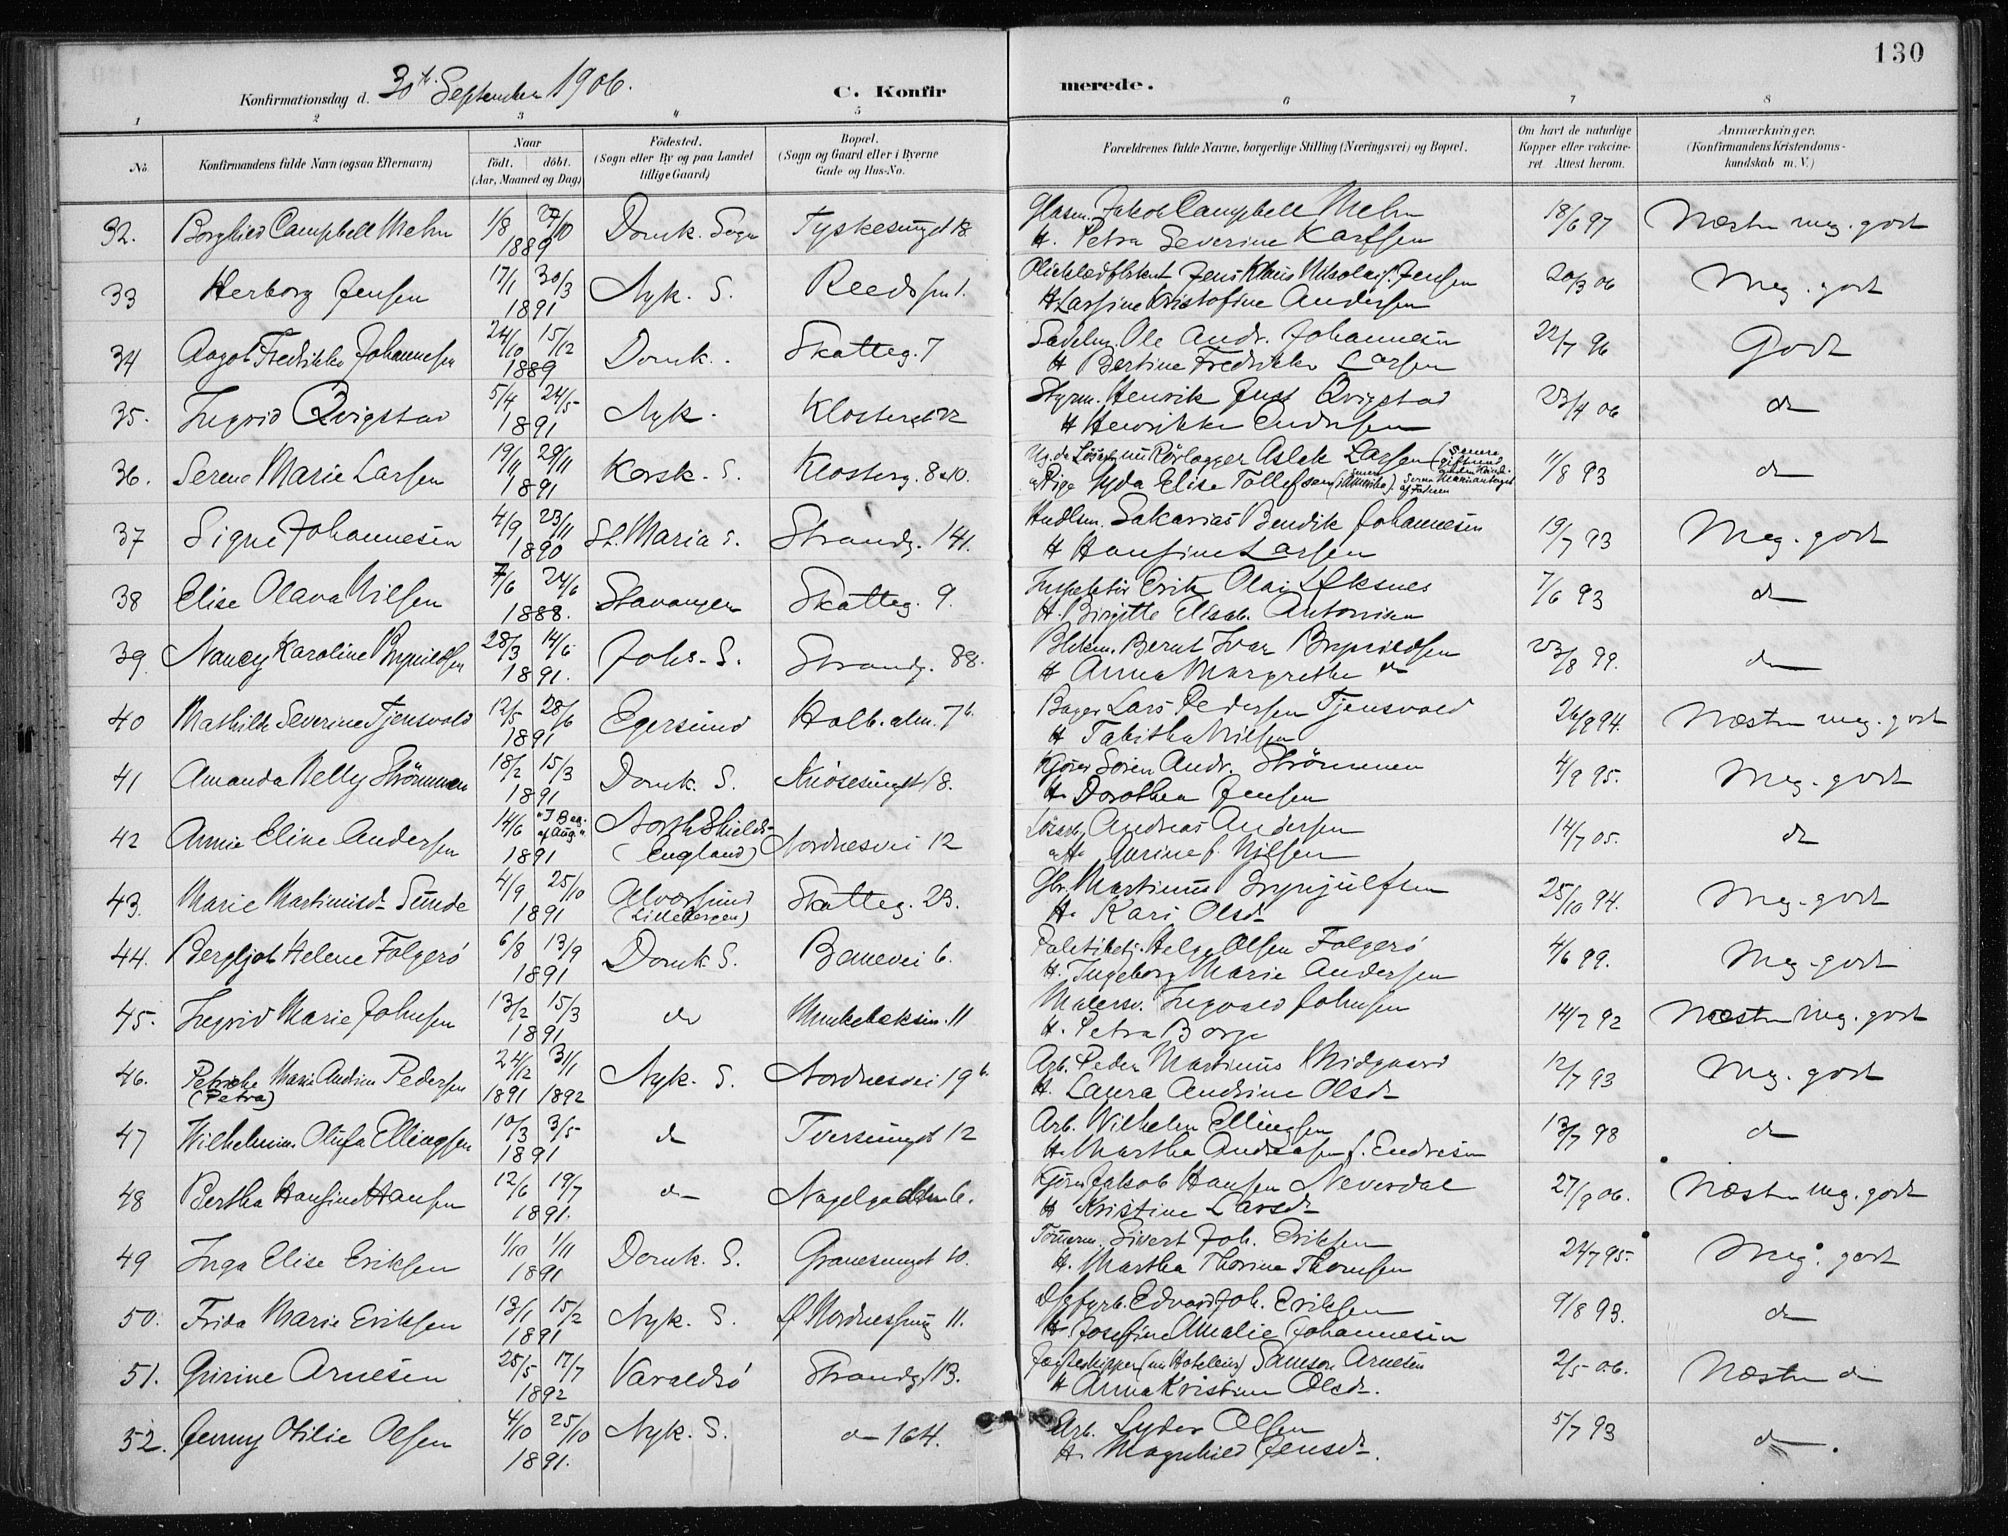 130
Konfirmationsdag d. 30te September 1906. C. Konfirmerede.
1 2 3 4 5 6 7 8
No. Konfirmandens fulde Navn (ogsaa Efternavn) Naar födt. döbt. (Aar, Maaned og Dag) Födested. (Sogn eller By og paa Landet tillige Gaard) Bopæl. (Sogn og Gaard eller i Byerne Gade og Hus-No. Forældrenes fulde Navne, borgerlige Stilling (Næringsvei) og Bopæl. Om havt de naturlige Kopper eller vakcineret Attest herom. Anmærkninger. (Konfirmandens Kristendomskundskab m. V.)
32. Borghild Campbell Mehn 1/8 27/10 1889 Domk. Sogn Tyskesmuget 18 Glasm. Jakob Campbell Mehn 18/6 97 Næsten meg. godt
H. Petra Severine Karlsen
33 Herborg Jensen 17/1 30/3 1891 Nyk. S. Reedsm 1. Jens Klaus Nikolai Jensen 20/3 06 Meg. godt
H Larsine Kristofine Andersen
34 Aagot Fredrikke Johannesen 24/10 15/12 1889 Domk. Skatteg. 7 Sadelm. Ole Andr. Johannesen 22/7 96 Godt
H Bertine Fredrikke Larsen
35. Ingrid Qvigstad 5/4 24/5 1891 Nyk. Klosteret 22 Styrm. Henrik Just Qvigstad 23/4 06 do
H Henrikke Endresen
36. Serene Marie Larsen 19/4 29/11 1891 Korsk. S. Klosterg. 8 Rørlægger Aslak Larsen 11/8 93 do
Pige Gyda Elise Tollefsen (i Amerika)
37 Signe Johannesen 4/9 23/11 1890 St. Maria S. Strandg. 141. Hndlsm. Sakarias Bendik Johannesen 19/7 93 Meg. godt
H Hansine Larsen
38 Elise Olava Nilsen 7/6 24/6 1888. Stavanger Skatteg. 9. Inspektör Erik Olai Eksnes 7/6 93 do
H. Birgitte Elisab. Antonisen
39. Nancy Karoline Brynildsen 28/3 14/6 1891. Johs. S. Strandg. 88. Blikm. Bernt Ivar Brynildsen 23/8 99. do
H Anna Margrethe do
40 Mathilde Severine Tjensvold 12/5 28/6 1891 Egersund Holb. alm. 7b. Bager Lars Pedersen Tjensvold 26/9 94. Næsten meg. godt
H Tabitha Nilsen
41 Amanda Nelly Strömmen 18/2 15/3 1891 Domk. S. Knösesmuget 18. Kjörer Sören Andr. Strömmen 4/9 95. Meg. godt
H. Dorothea Jensen
42 Annie Eline Andersen 14/6 "I Beg. af Aug." 1891 North Shields (England) Nordnesvei 12 Andreas Andersen 14/7 05. do
H. Gurine f. Nilsen
43. Marie Martinusd. Sunde 4/9 25/10 1891 Alværsund (Lillebergen) Skatteg. 23. Martinus Brynjulfsen 25/10 94. Meg. godt
H. Kari Olsd.
44. Bergljot Helene Folgerö 6/8 13/9 1891 Domk. S. Banevei 6. Politibetj. Helge Olsen Folgerö 4/6 99. Meg. godt
H. Ingeborg Marie Andersen
45. Ingrid Marie Johnsen 13/2 15/3 1891 do Munkebeksm. 11 Malersv. Ingvald Johnsen 14/7 92 Næsten meg. godt
H. Petra Borge
46. Petrikke (Petra) Marie Andrine Pedersen 24/12 1891 31/1 1892 Nyk. S. Nordnesvei 19b. Arb. Peder Martinus Midgaard 12/7 93 Meg. godt
H. Laura Andrine Olsd.
47 Wilhelmine Olufa Ellingsen 10/3 3/5 1891 do Tversmuget 12 Arb. Wilhelm Ellingsen 13/7 98 do
H. Martha Andreasen f. Endresen
48 Bertha Hansine Hansen 12/6 19/7 1891. do Nagelgaarden 6. Kjörer Jakob Hansen Neverdal 27/9 06. Næsten meg. godt
H Kristine Larsd.
49 Inga Elise Eriksen 1/10 1/11 1891 Domk. S. Granesmuget 10. Tömerm. Sivert Joh. Eriksen 24/7 95. Meg. godt
H. Martha Thorine Thomsen
50. Frida Marie Eriksen 13/1 15/2 1891 Nyk. S. Nordnessmug 11. Edvard Joh. Eriksen 9/8 93. do
H. Josefine Amalie Johannesen
51. Gurine Arnesen 25/5 17/7 1892 Varaldsö Strandg. 113. Jægteskipper (nu Hoteleier) Samson Arnesen 2/5 06. Næsten do
H Anna Kristine Olsdr.
52. Jenny Otilie Olsen 4/10 25/10 1891. Nyk. S. do 164. Arb. Lyder Olsen 5/7 93 do.
H. Magnhild Jensd.